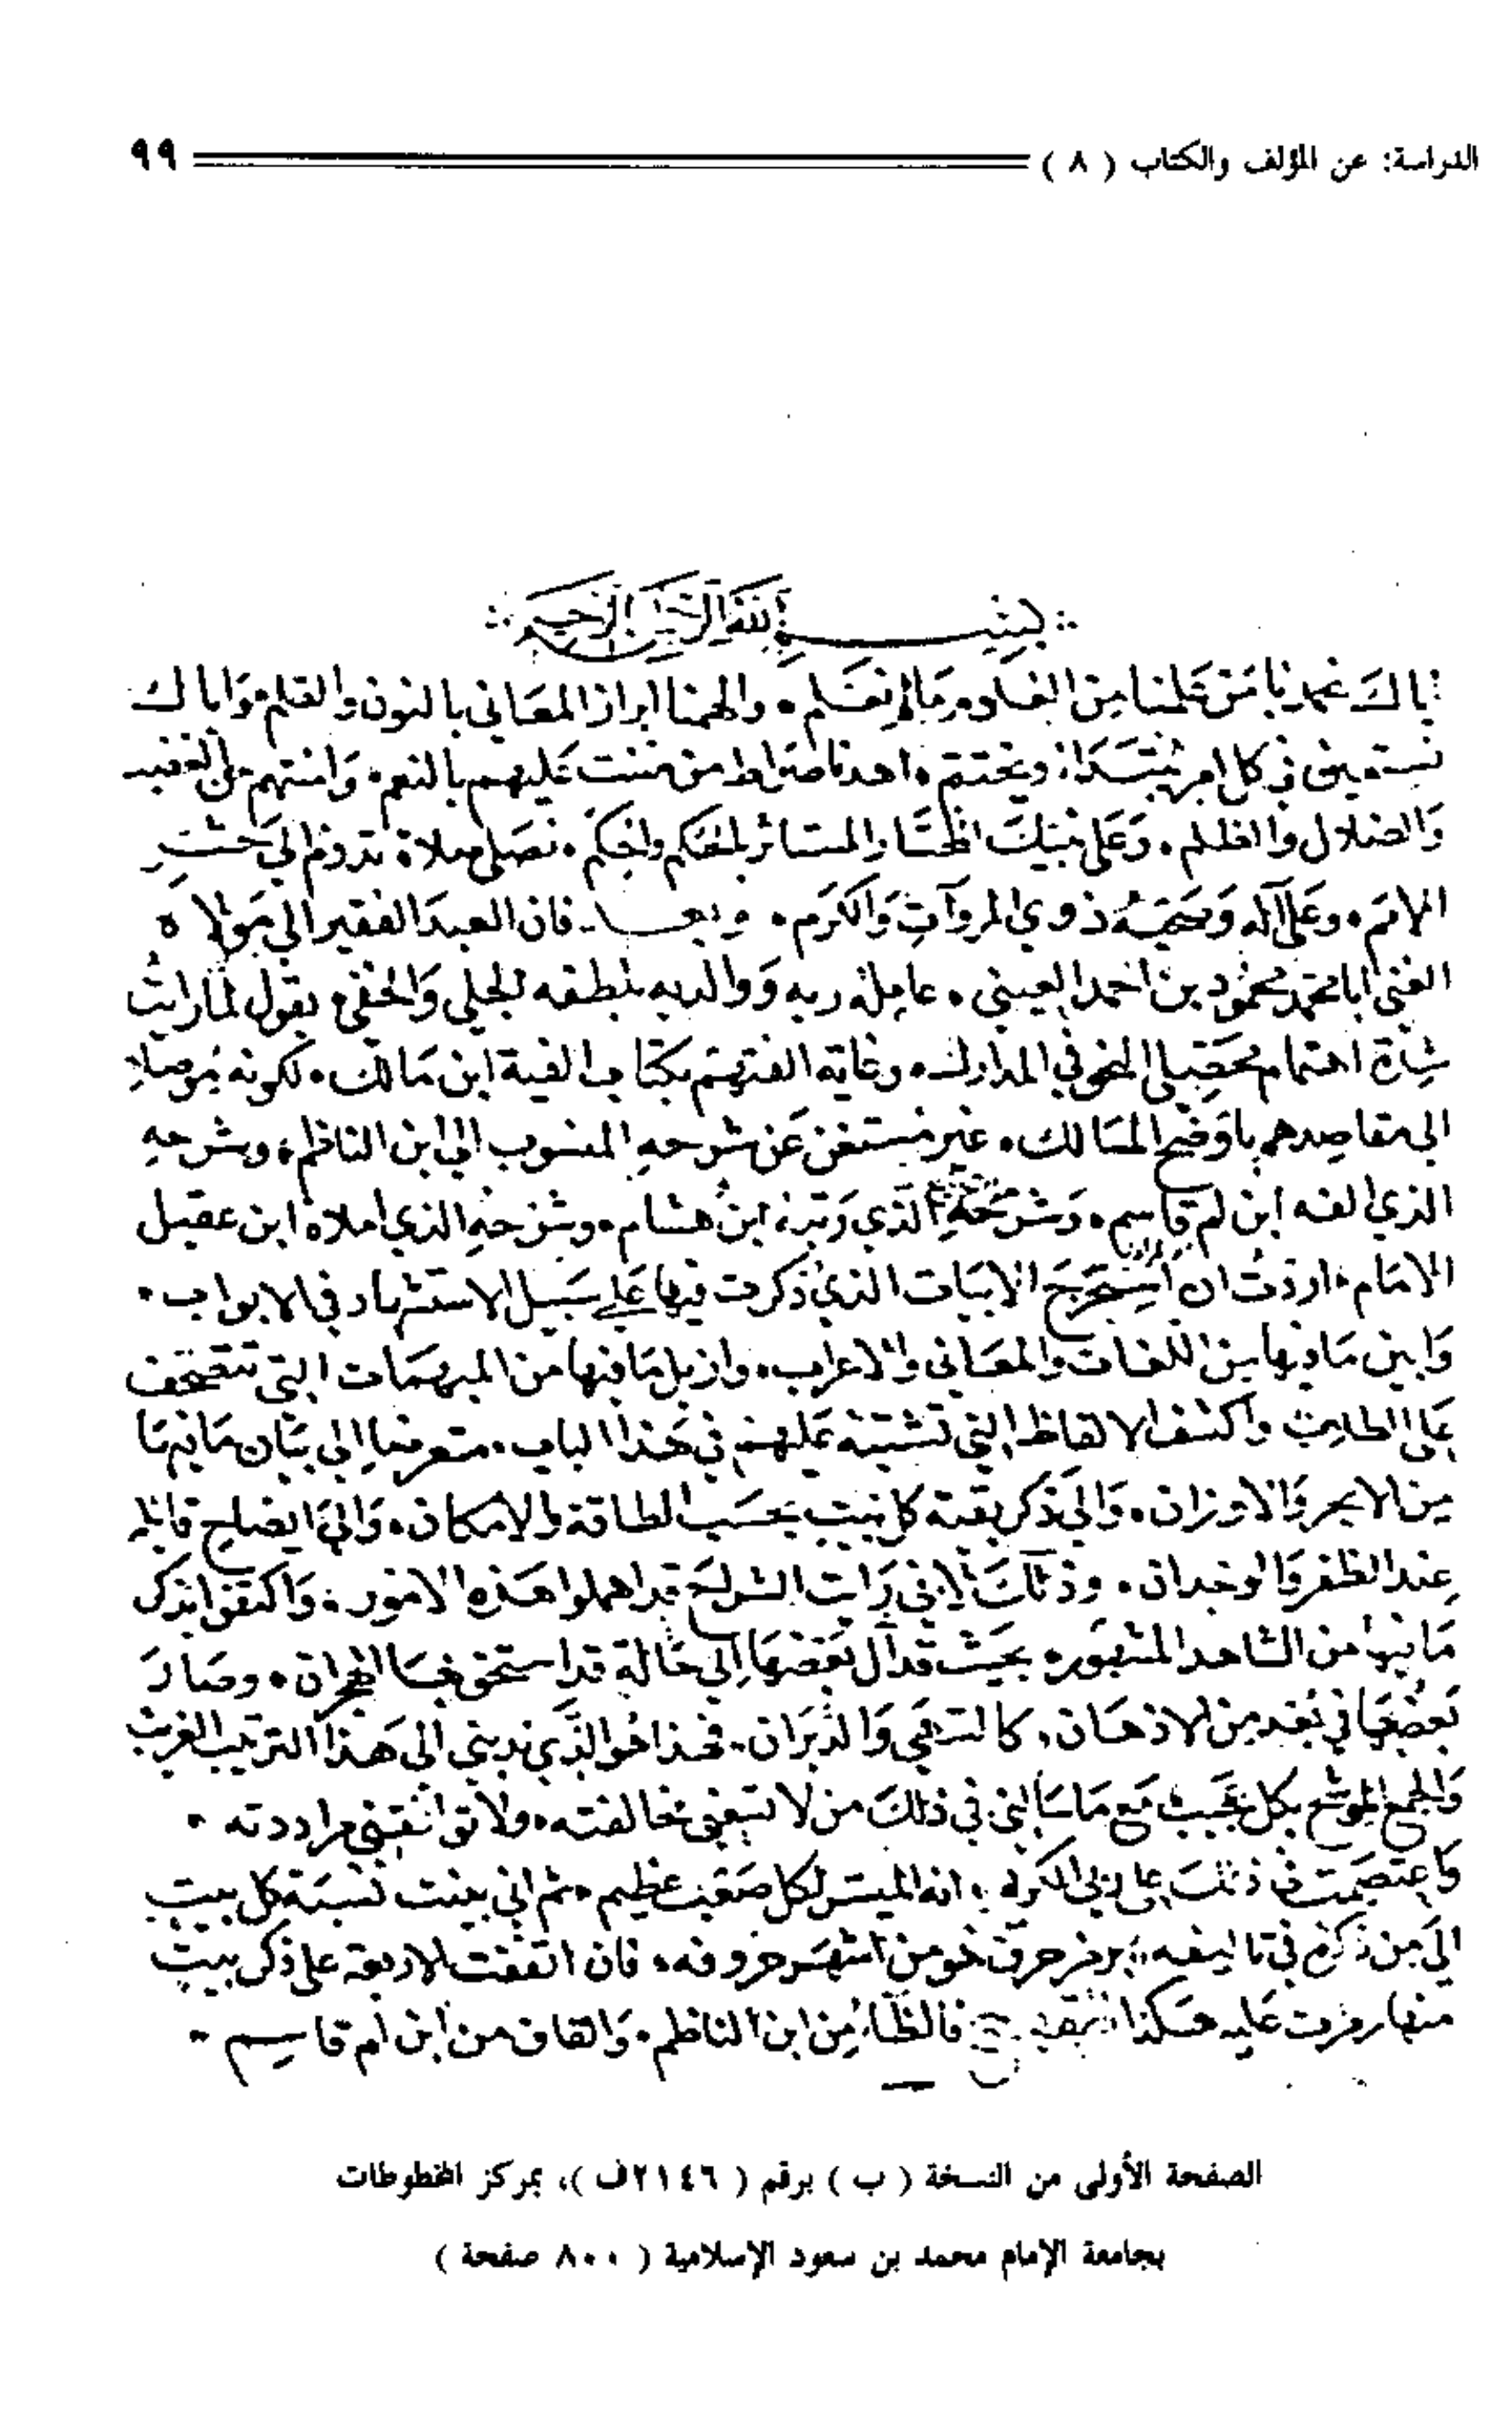 الدراسة: عن المؤلف والكتاب ( ٨ ) ٩٩
بسم الله الرحمن الرحيم
إياك نحمد يا من علمنا من العلوم ما لم نعلم، والهمنا ابراز المعاني بالنون والقلم، واياك
نستعين في كل امر يبتدا، ويختتم، اهدنا صراط من مننت عليهم بالنعم، وامنتهم من
والضلال والظلم، وعلى نبيك المختار المستاثر بالحكم، نصلي صلاة تدوم الى حشر
الامم، وعلى آله وصحبه ذوي المروآت والكرم، وبعد فان العبد الفقير الى مولاه
الغني ابا محمد محمود بن احمد العيني، عامله ربه ووالديه بلطفه الجلي والخفي يقول لما رايت
شدة اهتمام محصلي النحو في المدارك، وغاية الفتهم بكتاب الفية ابن مالك، لكونه موصلا
الى مقاصدهم باوضح المسالك، غير مستغن عن شرحه المنسوب الى ابن الناظم، وشرحه
الذي الفه ابن ام قاسم، وشرحه الذي رتبه ابن هشام، وشرحه الذي املاه ابن عقيل
الامام، اردت ان استخرج الابيات الذي ذكرت فيها على سبيل الاستشهاد في الابواب،
وابين ما فيها من اللغات والمعاني والاعراب، وازيل ما فيها من المبهمات التي تتصحف
على الطالبين واكشف الالفاظ التي تشتبه عليهم في هذا الباب، متعرضا الى بيان ما فيها
من الابحر والاوزان، والى ذكر بقية كل بيت بحسب الطاقة والامكان، والى ايضاح قائله
عند الظفر والوجدان، وذلك لاني رايت الشراح قد اهملوا هذه الامور، واكتفوا بذكر
ما فيها من الشاهد المشهور، بحيث قد آل بعضها الى حالة قد استحق بها الهجران، وصار
بعضها في بعد من الاذهان، كالثريا والدبران، فهذا هو الذي ندبني الى هذا الترتيب الغريب
والجمع الموشح بكل عجيب مع ما سألني في ذلك من لا تسعني مخالفته، ولا توافقني مراددته،
واعتصمت في ذلك على ربي الكريم، انه الميسر لكل صعب عظيم، ثم اني بينت نسبة كل بيت
الى من ذكره في تاليفه، برمز حرف هو من اشهر حروفه، فان اتفقت الاربعة على ذكر بيت
منها رمزت عليه هكذا ظقهع فالظاء من ابن الناظم، والقاف من ابن ام قاسم،
الصفحة الأولى من النسخة ( ب ) برقم ( ٢١٤٦ف )، بمركز المخطوطات
بجامعة الإمام محمد بن سعود الإسلامية ( ٨٠٠ صفحة )